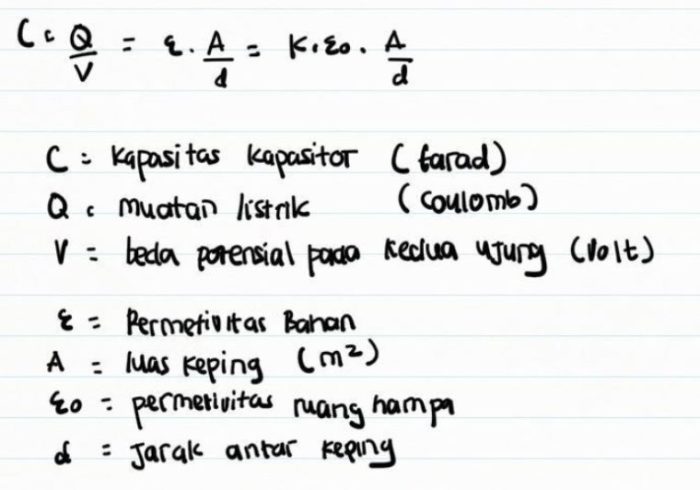 C = Q/V = ε . A/d = K . εo . A/d
C = Kapasitas Kapasitor (farad)
Q = muatan listrik (Coulomb)
V = beda potensial pada kedua ujung (Volt)
ε = Permetivitas Bahan
A = luas keping (m²)
εo = permetivitas ruang hampa
d = Jarak antar keping